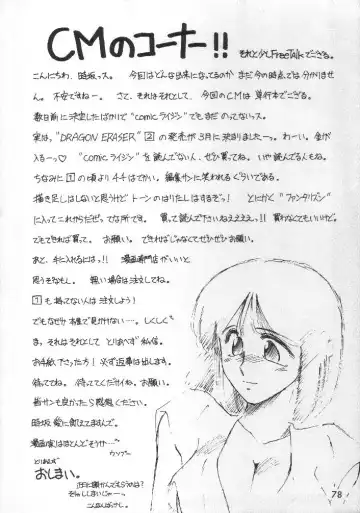 CMのコーナー!! それと少しFreeTalkでござる。
こんにちわ、睦坂っス。今回はどんな出来になってるのかまだ今の時点では分かりません。
不安ですねー。さて、それはそれとして、今回のCMは単行本でござる。
数日前に決定したばかりで"comicライジン"でもまだのってないっス。
実は、"DRAGON ERASER"2の発売が3月に決まりましたーっ。わーい。金が
入るーっ♡ "comicライジン"を読んでない人、ぜひ買ってね。いや読んでる人もね。
ちなみに1の頃より44はでかい。編集サンに笑われるくらいである。
描き足しはしないと思うけど トーンのはりたしはするぞっ! とにかく"ファンタリズン"
に入ってこれからだぜっ、てな所です。買って読んで下さいねえええっ!! 買わなくてもいいけど。
でもできれば買って。お願い。できればじゃなくてぜひぜひお願い。
あと、手に入れるには!! 漫画専門店がいいと
思うぞなもし。無い場合は注文してね。
1も持ってない人は注文しよう!
でもなぜか本屋で見かけない…。しくしく
ま、それはそれとして とりあえず私信。
お手紙下さった方! 必ず返事は出します。
待っててね。待っててくだサイね。お願い。
皆サンも良かったら感想ください。
睦坂、愛に飢えてますんで。
漫画家はほとんどそうか…
とりあえず
おしまい。
78